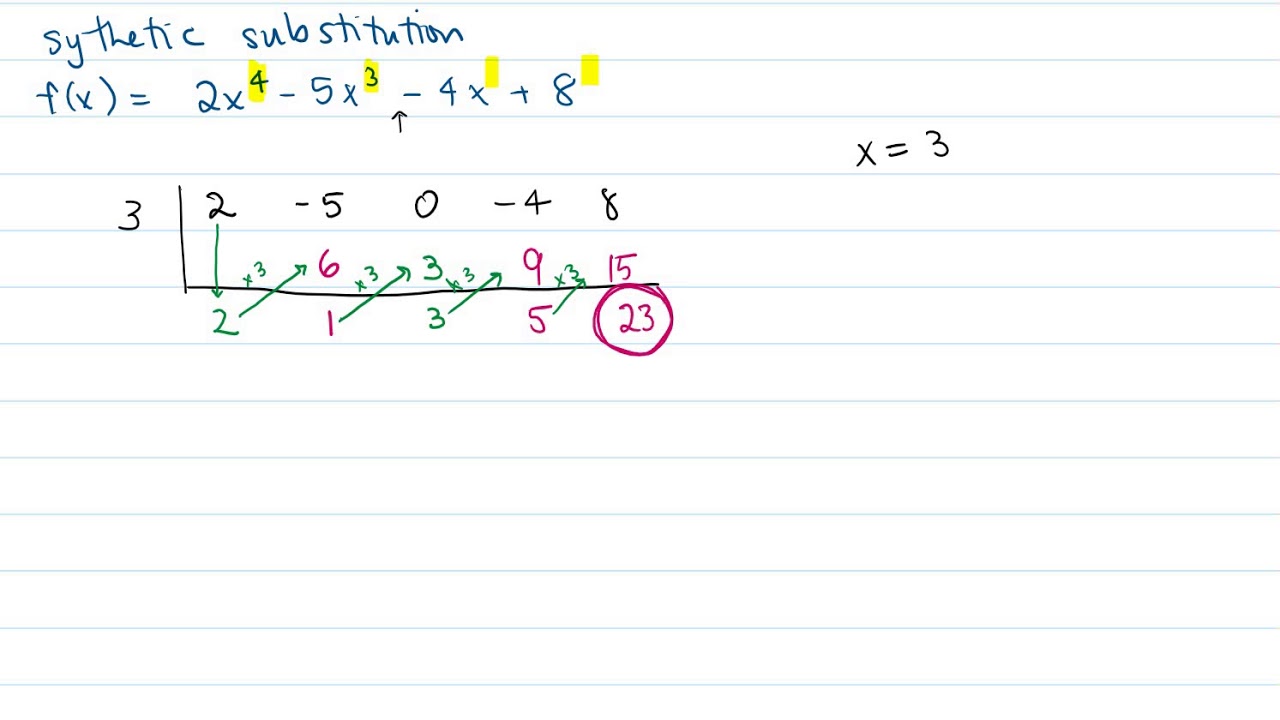 sythetic substitution
f(x) = 2x⁴ - 5x³ - 4x + 8
↑
x = 3
3 2 -5 0 -4 8
x3 6 x3 3 x3 9 x3 15
2 1 3 5 23